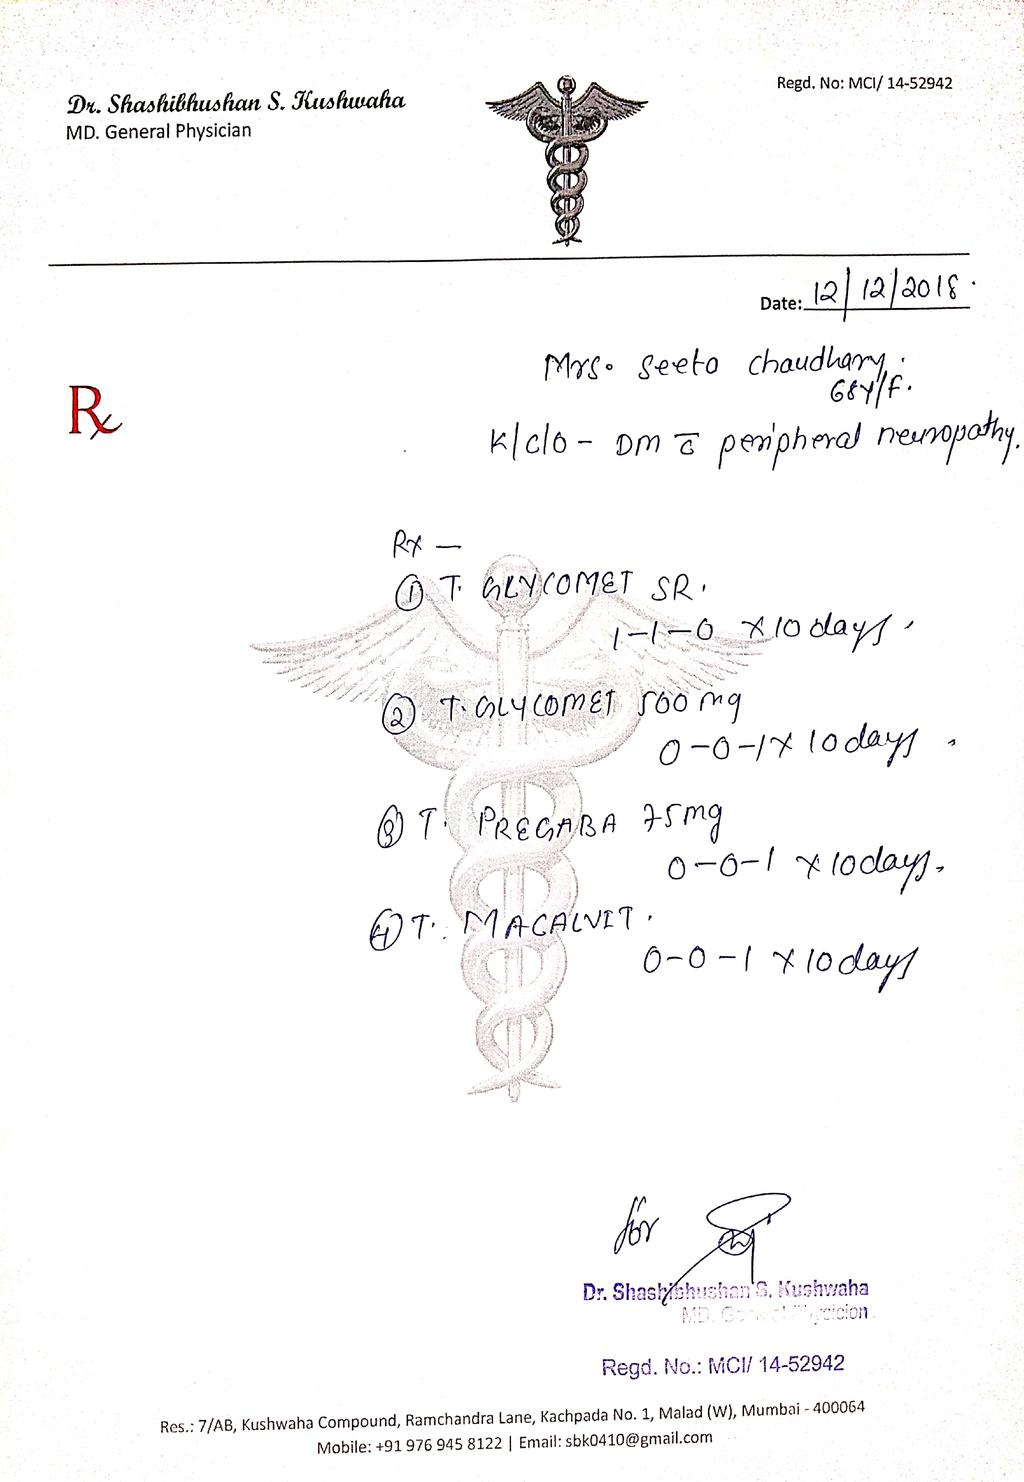 Dr. Shashibhushan S. Kushwaha
MD. General Physician
Regd. No: MCI/ 14-52942
Date: 12/12/2018.
Mrs. Seeta Chaudhary.
68y/F.
Rx
K/C/O - DM c̄ peripheral neuropathy.
Rx —
① T. GLYCOMET SR.
1-1-0 x 10 days.
② T. GLYCOMET 500 mg
0-0-1 x 10 days.
③ T. PREGABA 75mg
0-0-1 x 10 days.
④ T. MACALVIT.
0-0-1 x 10 days
for
Dr. Shashibhushan S. Kushwaha
MD. General Physician
Regd. No.: MCI/ 14-52942
Res.: 7/AB, Kushwaha Compound, Ramchandra Lane, Kachpada No. 1, Malad (W), Mumbai - 400064
Mobile: +91 976 945 8122 | Email: sbk0410@gmail.com